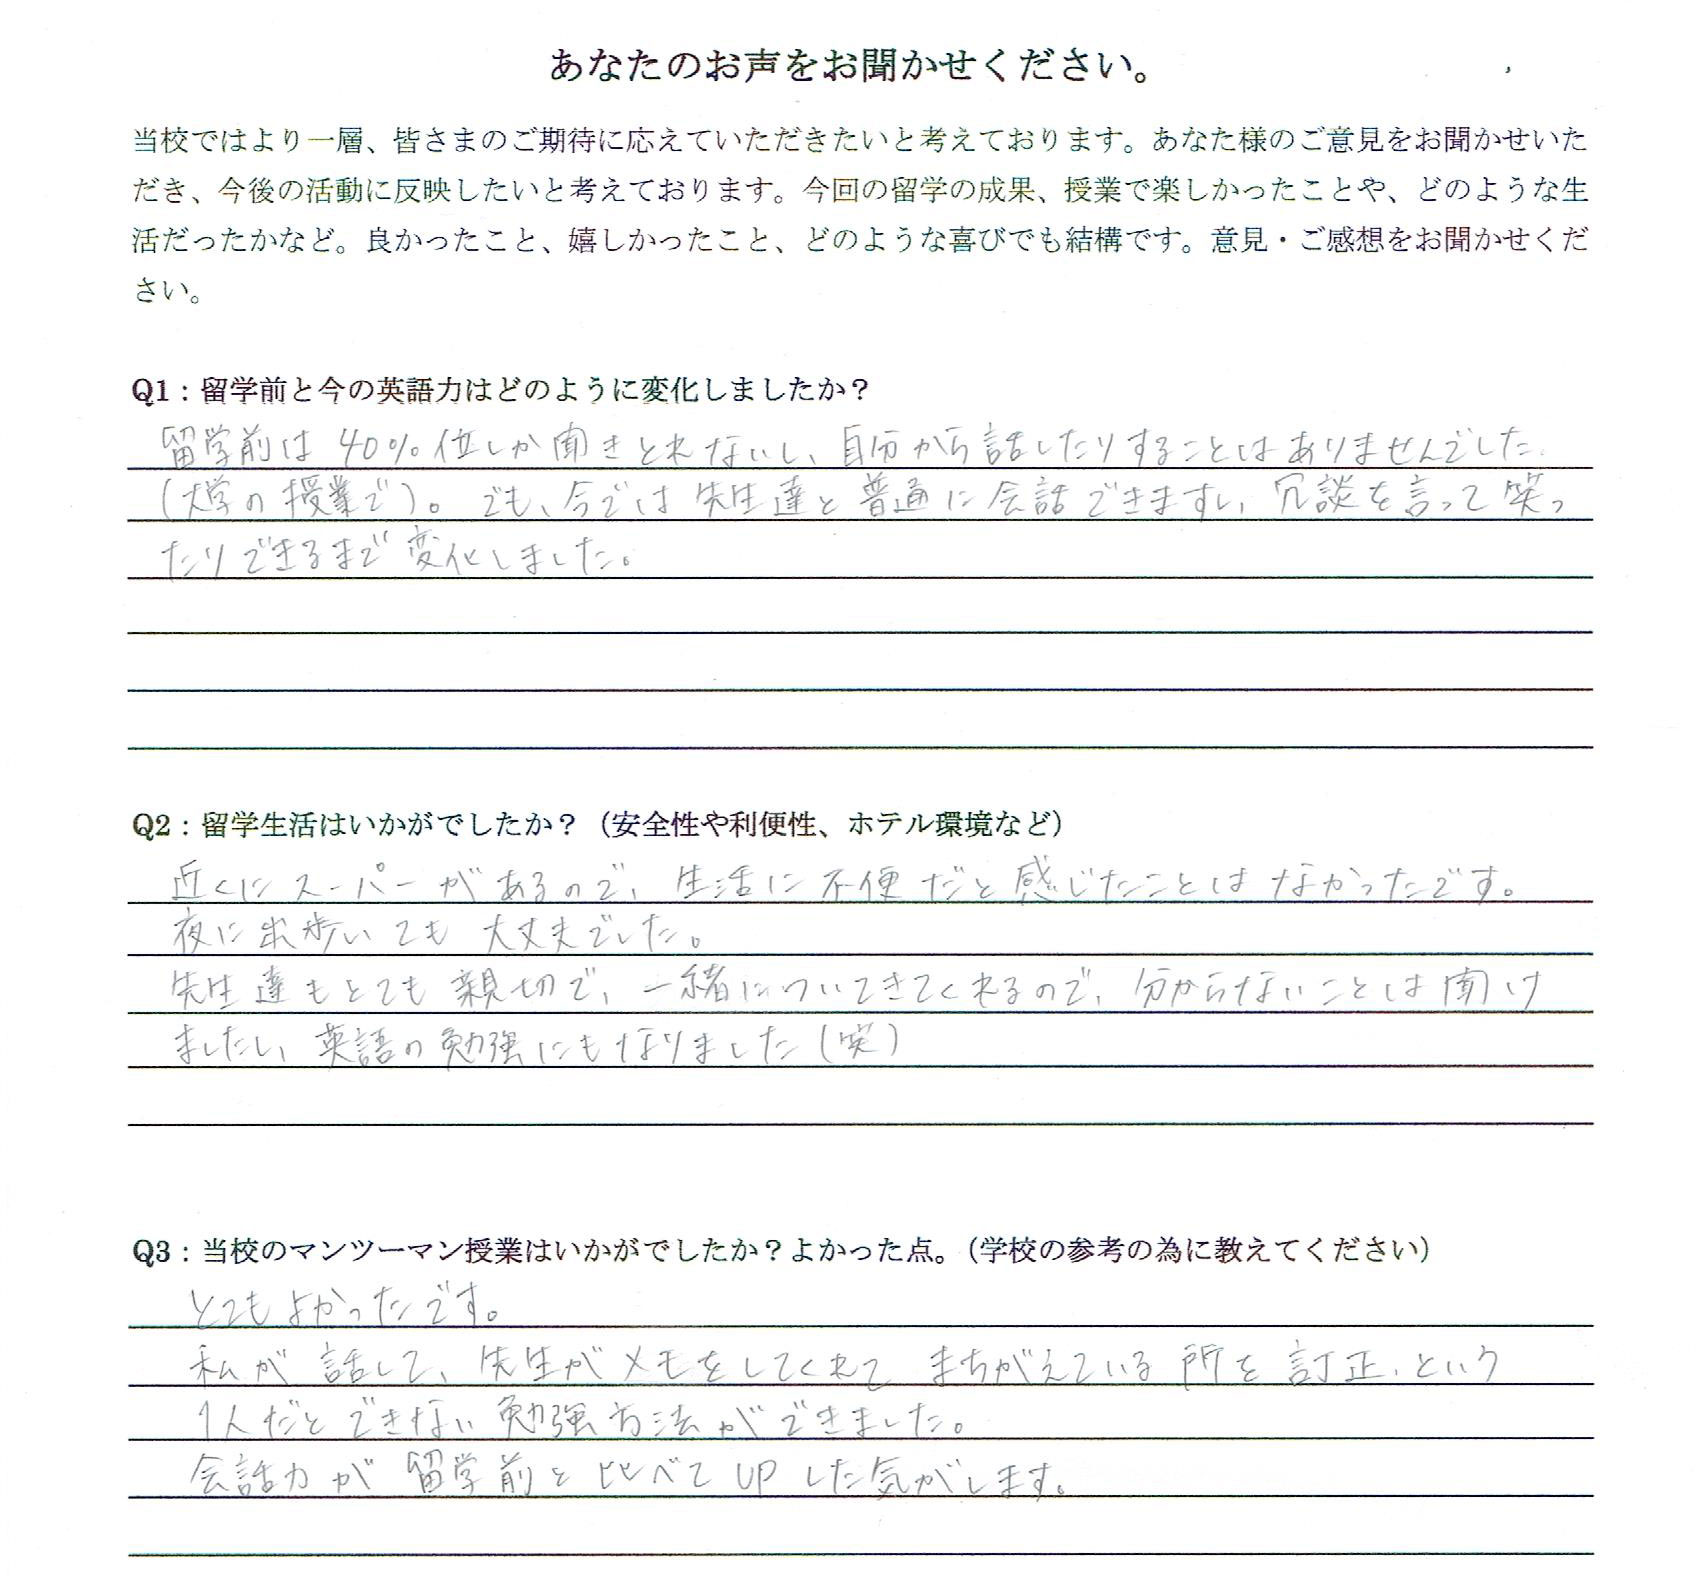 あなたのお声をお聞かせください。
当校ではより一層、皆さまのご期待に応えていただきたいと考えております。あなた様のご意見をお聞かせいた
だき、今後の活動に反映したいと考えております。今回の留学の成果、授業で楽しかったことや、どのような生
活だったかなど。良かったこと、嬉しかったこと、どのような喜びでも結構です。意見・ご感想をお聞かせくだ
さい。
Q1：留学前と今の英語力はどのように変化しましたか？
留学前は40%位しか聞きとれないし、自分から話したりすることはありませんでした
(大学の授業で)。でも、今では先生達と普通に会話できますし、冗談を言って笑っ
たりできるまで変化しました。
Q2：留学生活はいかがでしたか？（安全性や利便性、ホテル環境など）
近くにスーパーがあるので、生活に不便だと感じたことはなかったです。
夜に出歩いても大丈夫でした。
先生達もとても親切で、一緒についてきてくれるので、分からないことは聞け
ましたし、英語の勉強にもなりました(笑)
Q3：当校のマンツーマン授業はいかがでしたか？よかった点。（学校の参考の為に教えてください）
とてもよかったです。
私が話して、先生がメモをしてくれてまちがえている所を訂正、という
1人だとできない勉強方法ができました。
会話力が留学前と比べてUPした気がします。